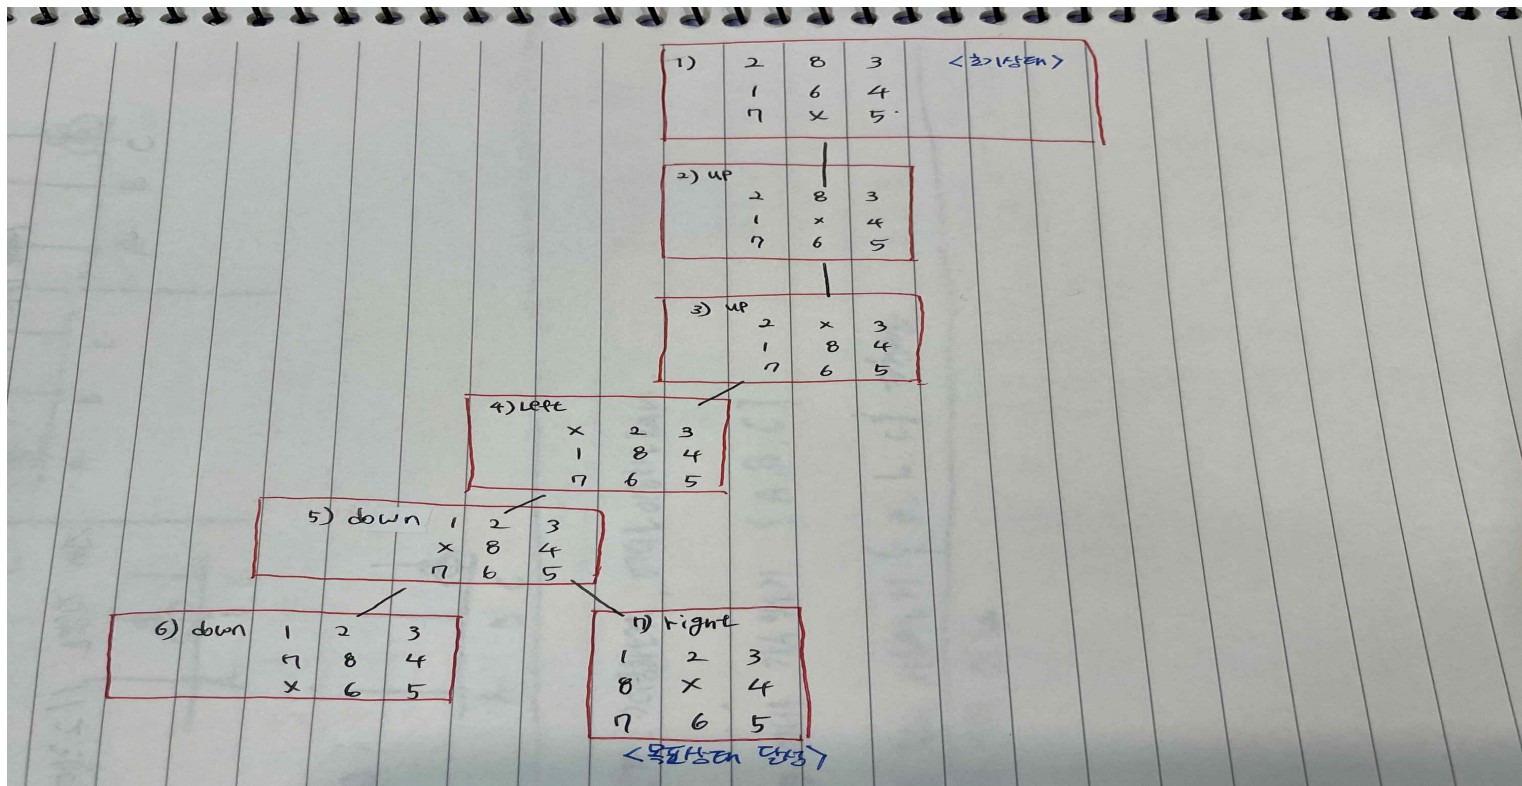 1) 2 8 3 <초기상태>
1 6 4
7 x 5
2) up
2 8 3
1 x 4
7 6 5
3) up
2 x 3
1 8 4
7 6 5
4) Left
x 2 3
1 8 4
7 6 5
5) down 1 2 3
x 8 4
7 6 5
6) down 1 2 3
7 8 4
x 6 5
7) right
1 2 3
8 x 4
7 6 5
<목표상태 달성>